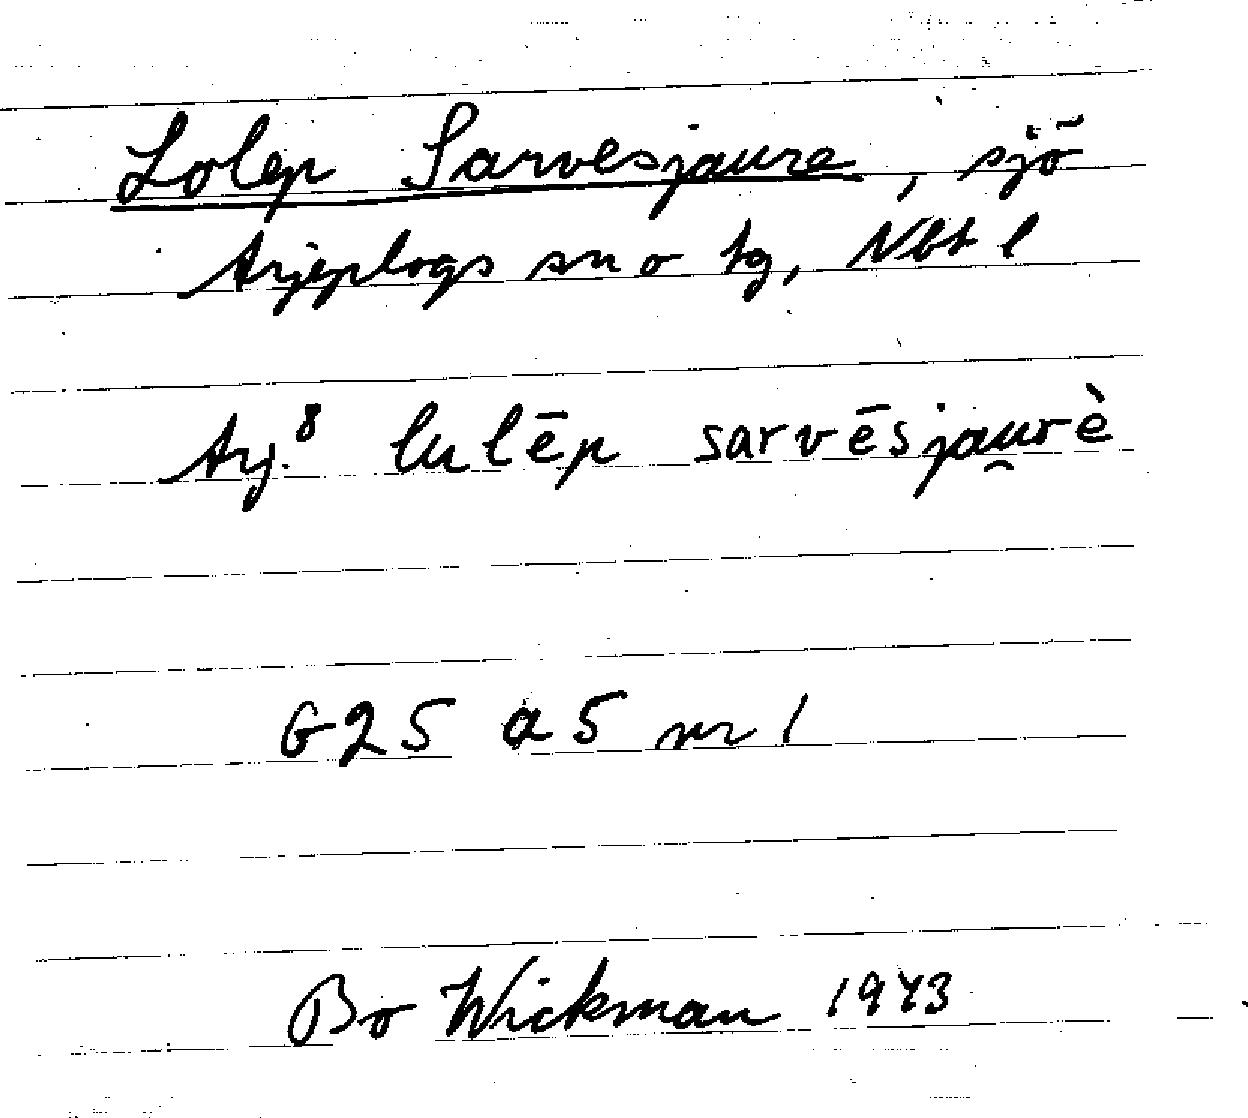 Lolep Sarvesjaure, sjö
Arjeplogs sn o tg, Nbt l
Arj.8 lulēp sarvēsjau̯rè
G25 a5 nr 1
Bo Wickman 1943